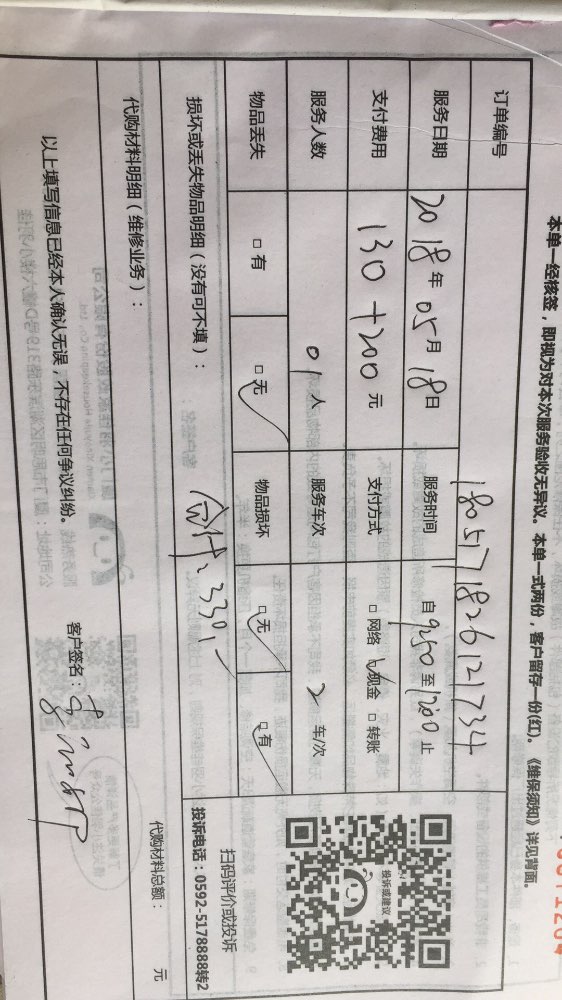 本单一经核签，即视为对本次服务验收无异议。本单一式两份，客户留存一份(红)。《维保须知》详见背面。
订单编号 1805171826121734
服务日期 2018年05月18日 服务时间 自9:50至12:00止
支付费用 130+200元 支付方式 □网络 ☑现金 □转账
服务人数 01人 服务车次 2车/次
物品丢失 □有 ☑无 物品损坏 ☑无 ☑有
扫码评价或投诉
投诉电话：0592-5178888转2
投诉或建议
损坏或丢失物品明细（没有可不填）：
合计：330.-
代购材料明细（维修业务）：
代购材料总额： 元
以上填写信息已经本人确认无误，不存在任何争议纠纷。 客户签名：